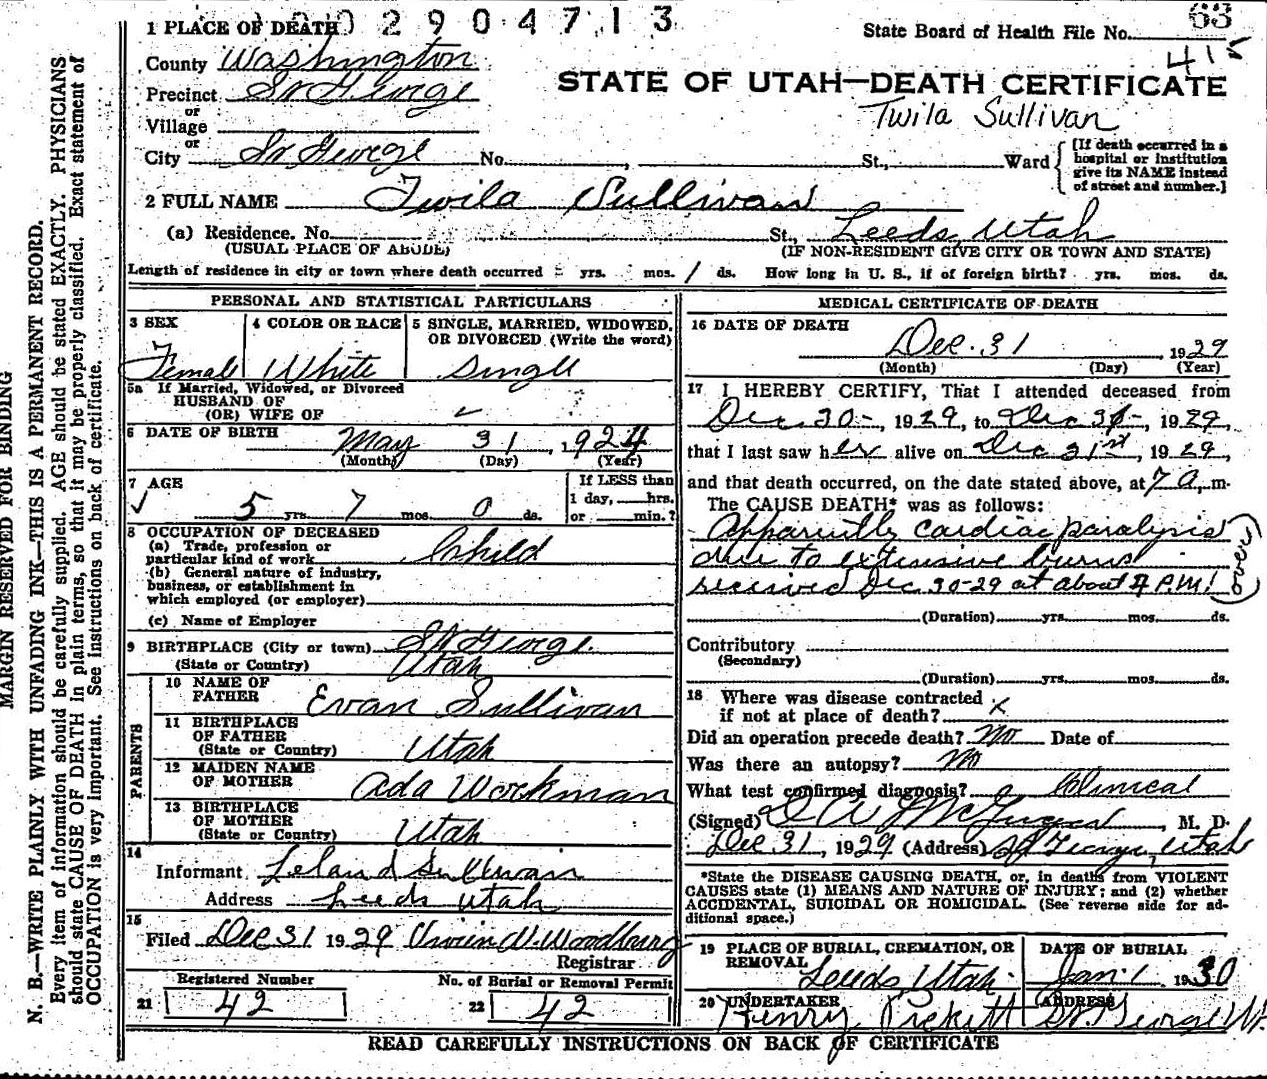 2904713
1 PLACE OF DEATH
State Board of Health File No. 63
415
County Washington
STATE OF UTAH—DEATH CERTIFICATE
Precinct St George
Twila Sullivan
or
Village
or
City St George No. , St., Ward
[If death occurred in a
hospital or institution
give its NAME instead
of street and number.]
2 FULL NAME Twila Sullivan
(a) Residence. No. St., Leeds, Utah
(USUAL PLACE OF ABODE) (IF NON-RESIDENT GIVE CITY OR TOWN AND STATE)
Length of residence in city or town where death occurred yrs. mos. 1 ds. How long in U. S., if of foreign birth? yrs. mos. ds.
PERSONAL AND STATISTICAL PARTICULARS
3 SEX 4 COLOR OR RACE 5 SINGLE, MARRIED, WIDOWED,
OR DIVORCED (Write the word)
Female White Single
5a If Married, Widowed, or Divorced
HUSBAND OF
(OR) WIFE OF
6 DATE OF BIRTH May 31, 1924
(Month) (Day) (Year)
7 AGE
If LESS than
1 day, hrs.
or min.?
5 yrs. 7 mos. 0 ds.
8 OCCUPATION OF DECEASED
(a) Trade, profession or
particular kind of work Child
(b) General nature of industry,
business, or establishment in
which employed (or employer)
(c) Name of Employer
9 BIRTHPLACE (City or town) St George.
(State or Country) Utah
PARENTS
10 NAME OF
FATHER Evan Sullivan
11 BIRTHPLACE
OF FATHER
(State or Country) Utah
12 MAIDEN NAME
OF MOTHER Ada Workman
13 BIRTHPLACE
OF MOTHER
(State or Country) Utah
14
Informant Leland Sullivan
Address Leeds Utah
15
Filed Dec 31 1929 Woodbury
Registrar
Registered Number No. of Burial or Removal Permit
21 42 22 42
MEDICAL CERTIFICATE OF DEATH
16 DATE OF DEATH
Dec. 31, 1929
(Month) (Day) (Year)
17 I HEREBY CERTIFY, That I attended deceased from
Dec 30-, 1929, to Dec 31-, 1929,
that I last saw her alive on Dec 31st, 1929,
and that death occurred, on the date stated above, at 7 A, m.
The CAUSE DEATH* was as follows:
Apparently cardiac paralysis
due to extensive burns
received Dec. 30-29 at about 4 P.M. (over)
(Duration) yrs. mos. ds.
Contributory
(Secondary)
(Duration) yrs. mos. ds.
18 Where was disease contracted
if not at place of death? x
Did an operation precede death? No Date of
Was there an autopsy? No
What test confirmed diagnosis? Clinical
(Signed) , M. D.
Dec 31, 1929 (Address) St George, Utah
*State the DISEASE CAUSING DEATH, or, in deaths from VIOLENT
CAUSES state (1) MEANS AND NATURE OF INJURY; and (2) whether
ACCIDENTAL, SUICIDAL OR HOMICIDAL. (See reverse side for ad-
ditional space.)
19 PLACE OF BURIAL, CREMATION, OR
REMOVAL Leeds, Utah.
DATE OF BURIAL
Jan. 1 1930
20 UNDERTAKER ADDRESS
Henry Pickett St. George Ut.
READ CAREFULLY INSTRUCTIONS ON BACK OF CERTIFICATE
MARGIN RESERVED FOR BINDING
N. B.—WRITE PLAINLY WITH UNFADING INK—THIS IS A PERMANENT RECORD.
Every item of information should be carefully supplied. AGE should be stated EXACTLY. PHYSICIANS
should state CAUSE OF DEATH in plain terms, so that it may be properly classified. Exact statement of
OCCUPATION is very important. See instructions on back of certificate.